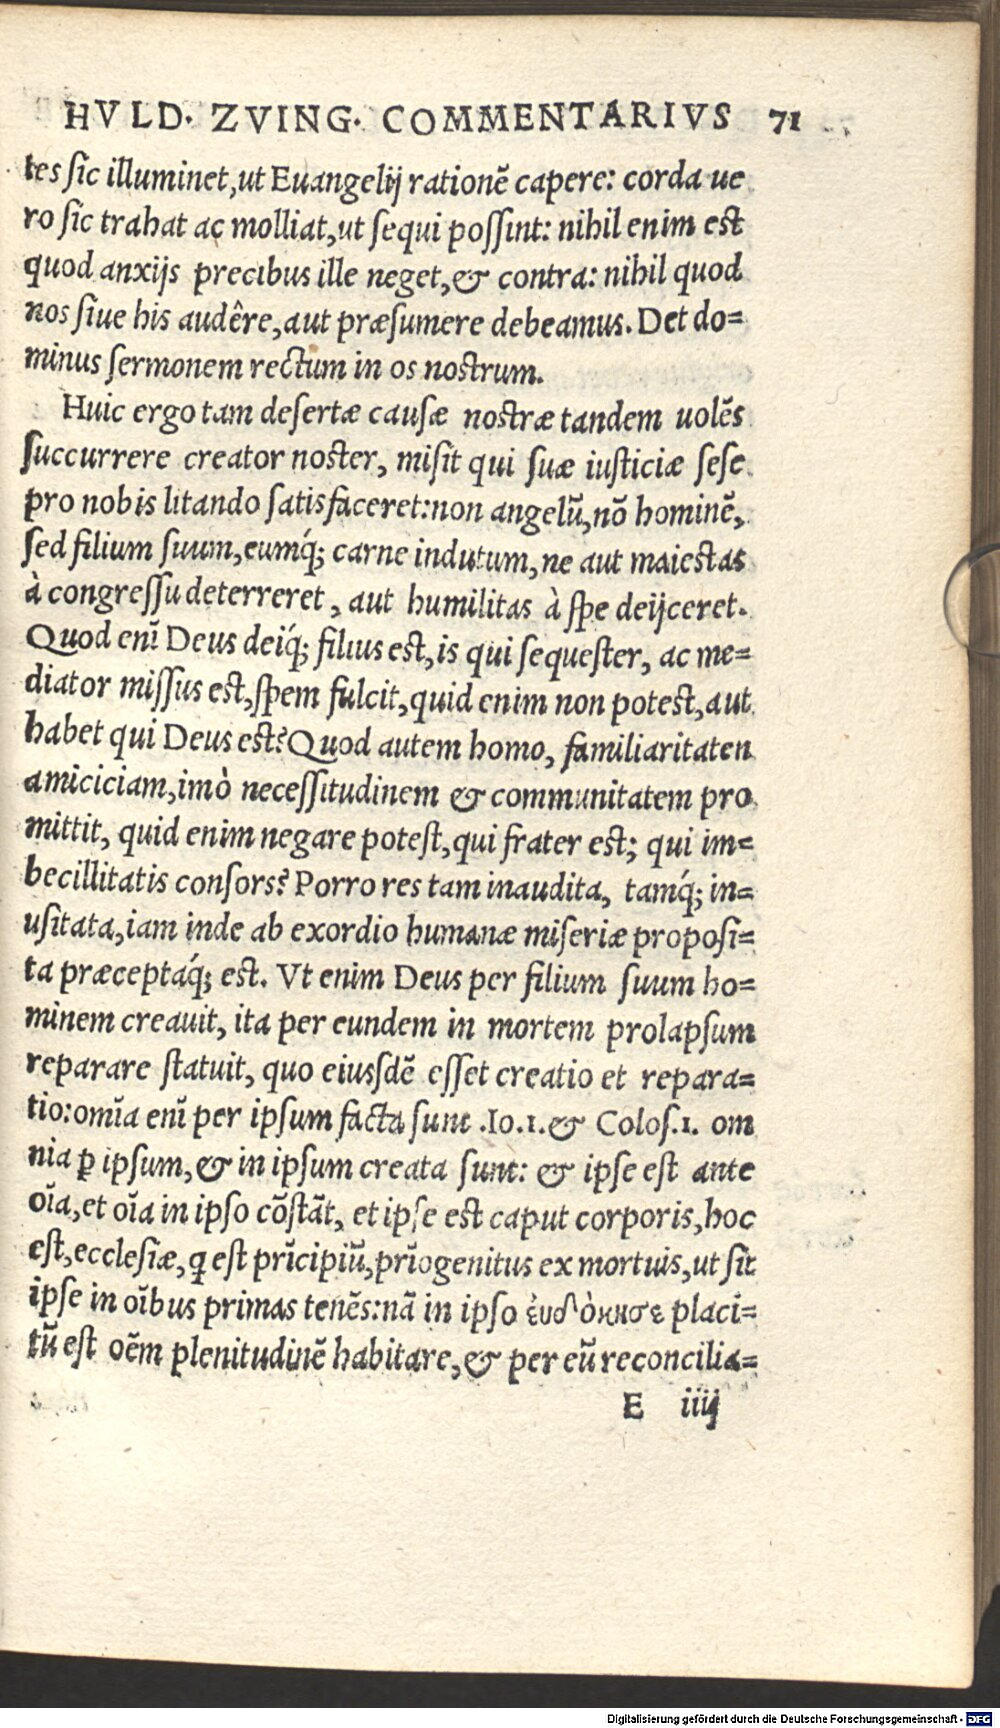 HVLD. ZVING. COMMENTARIVS 71
tes sic illuminet, ut Euangelij rationē capere: corda ue
ro sic trahat ac molliat, ut sequi possint: nihil enim est
quod anxijs precibus ille neget, & contra: nihil quod
nos siue his audêre, aut præsumere debeamus. Det do=
minus sermonem rectum in os nostrum.
Huic ergo tam desertæ causæ nostræ tandem uolēs
succurrere creator noster, misit qui suæ iusticiæ sese
pro nobis litando satisfaceret: non angelū, nō hominē,
sed filium suum, eumq́; carne indutum, ne aut maiestas
à congressu deterreret, aut humilitas à spe deijceret.
Quod enī Deus deiq́; filius est, is qui sequester, ac me=
diator missus est, spem fulcit, quid enim non potest, aut
habet qui Deus est? Quod autem homo, familiaritaten
amiciciam, imò necessitudinem & communitatem pro
mittit, quid enim negare potest, qui frater est; qui im=
becillitatis consors? Porro res tam inaudita, tamq́; in=
usitata, iam inde ab exordio humanæ miseriæ proposi=
ta præceptaq́; est. Vt enim Deus per filium suum ho=
minem creauit, ita per eundem in mortem prolapsum
reparare statuit, quo eiusdē esset creatio et repara=
tio: omīa enī per ipsum facta sunt. Io.1. & Colos.1. om
nia ꝑ ipsum, & in ipsum creata sunt: & ipse est ante
oīa, et oīa in ipso cōstāt, et ipse est caput corporis, hoc
est, ecclesiæ, q est prīcipiū, prīogenitus ex mortuis, ut sit
ipse in oībus primas tenēs: nā in ipso ἐυδόκησε placi=
tū est oēm plenitudinē habitare, & per eū reconcilia=
E iiij
Digitalisierung gefördert durch die Deutsche Forschungsgemeinschaft - DFG